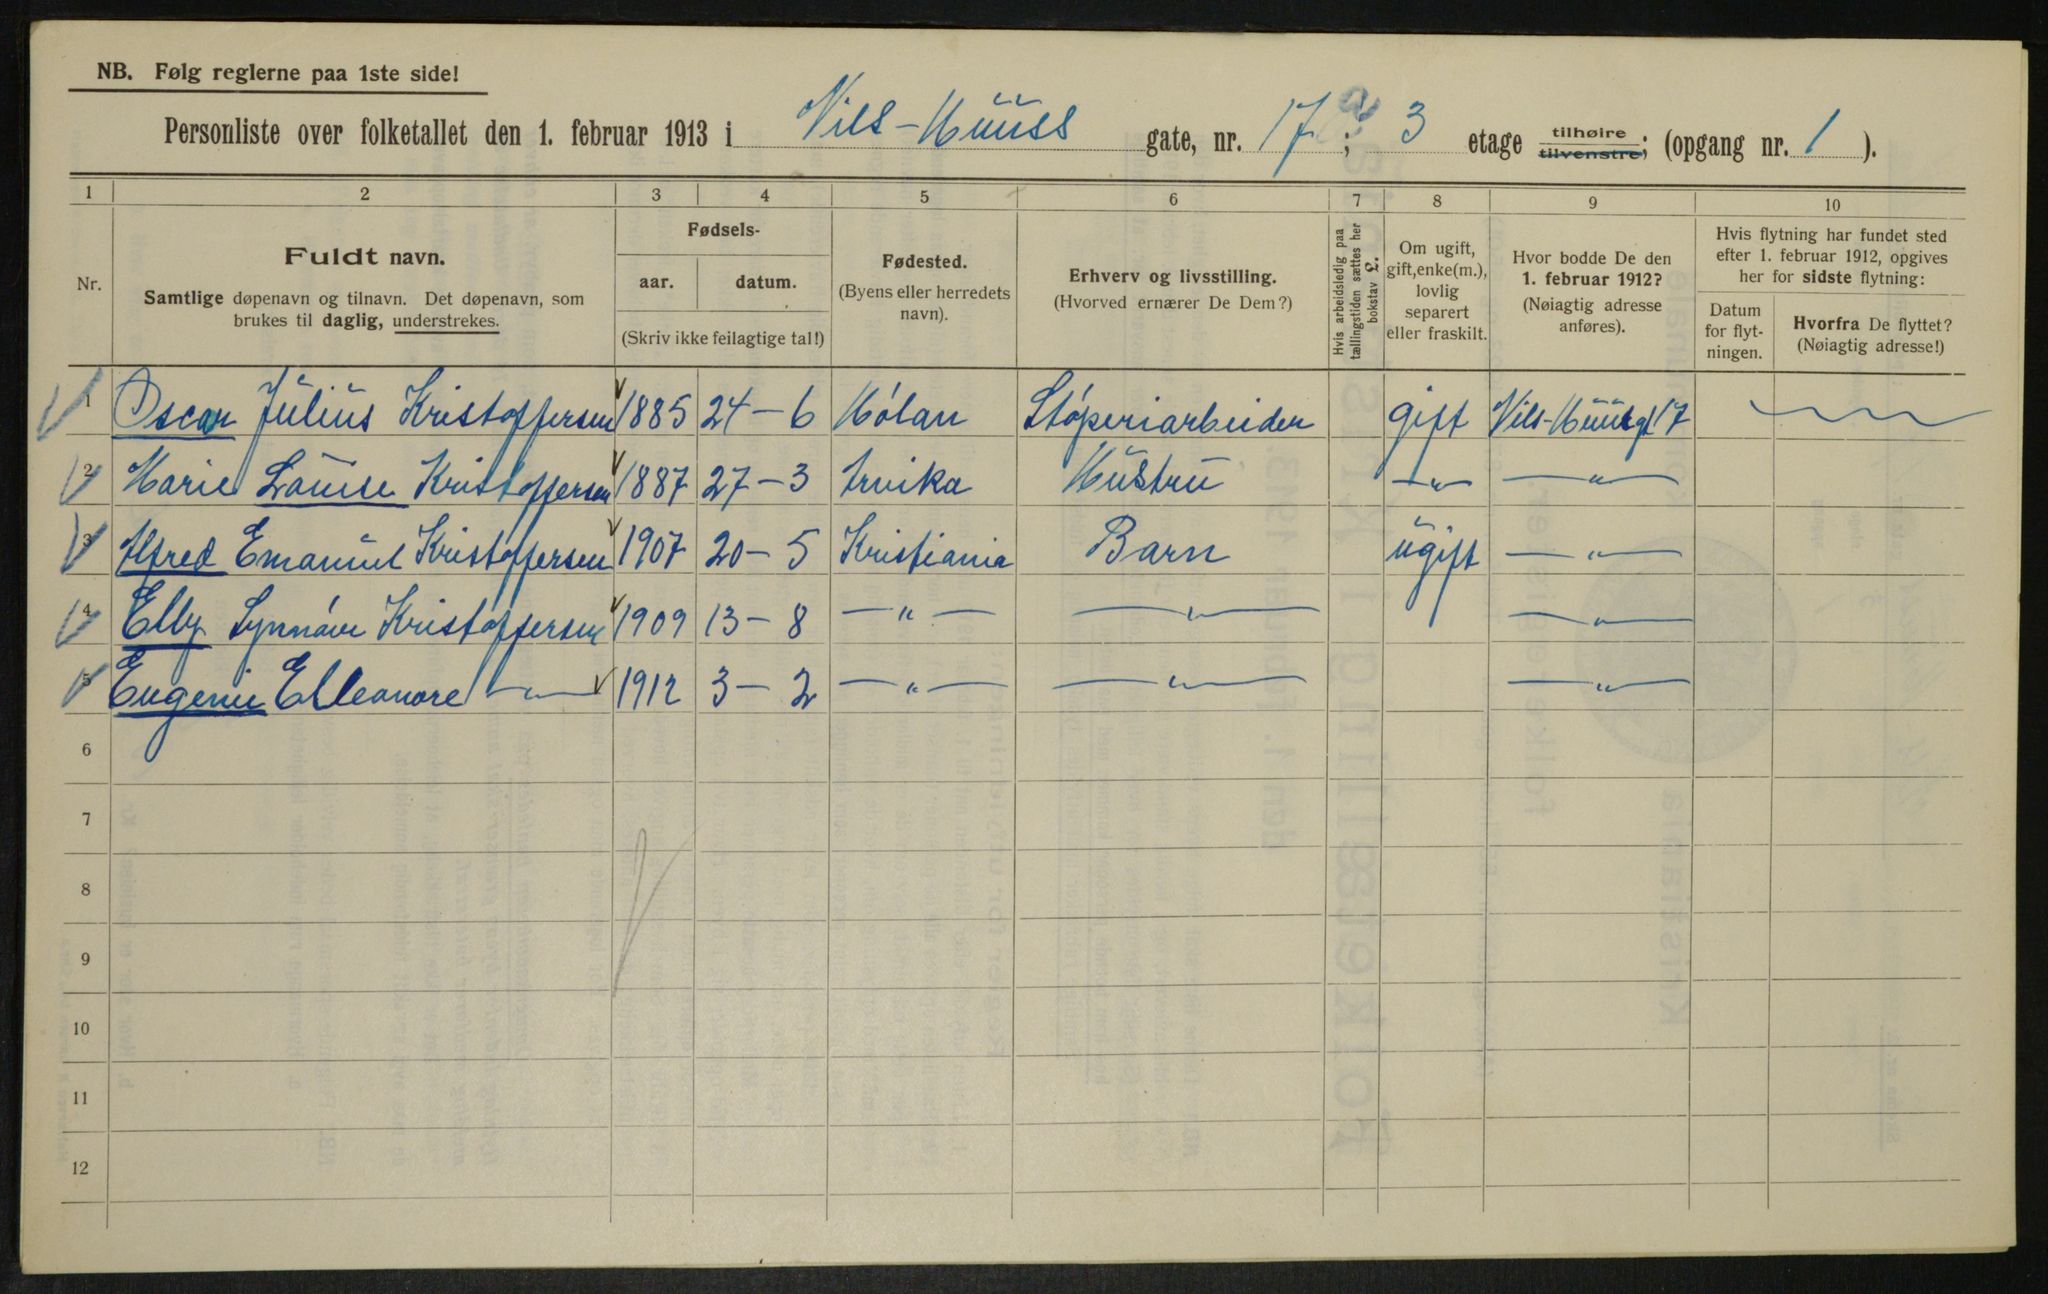 NB. Følg reglerne paa 1ste side!
Personliste over folketallet den 1. februar 1913 i Nils-Hüüss gate, nr. 17; 3 etage tilhøire tilvenstre; (opgang nr. 1).
1 2 3 4 5 6 7 8 9 10
Nr.
Fuldt navn.
Samtlige døpenavn og tilnavn. Det døpenavn, som
brukes til daglig, understrekes.
Fødsels-
aar. datum.
(Skriv ikke feilagtige tal!)
Fødested.
(Byens eller herredets
navn).
Erhverv og livsstilling.
(Hvorved ernærer De Dem?)
Hvis arbeidsledig paa
tællingstiden sættes her
bokstav L.
Om ugift,
gift, enke(m.),
lovlig
separert
eller fraskilt.
Hvor bodde De den
1. februar 1912?
(Nøiagtig adresse
anføres).
Hvis flytning har fundet sted
efter 1. februar 1912, opgives
her for sidste flytning:
Datum
for flyt-
ningen.
Hvorfra De flyttet?
(Nøiagtig adresse!)
1 Oscar Julius Kristoffersen 1885 24-6 Hólan Stóperiarbeider gift Nils-Hüüsgt 17
2 Marie Louise Kristoffersen 1887 27-3 Arvika Hustru -„- -„-
3 Alfred Emanuel Kristoffersen 1907 20-5 Kristiania Barn ugift -„-
4 Elly Synnóve Kristoffersen 1909 13-8 -„- -„- -„-
5 Eugenie Elleonore -„- 1912 3-2 -„- -„- -„-
6
7
8
9
10
11
12